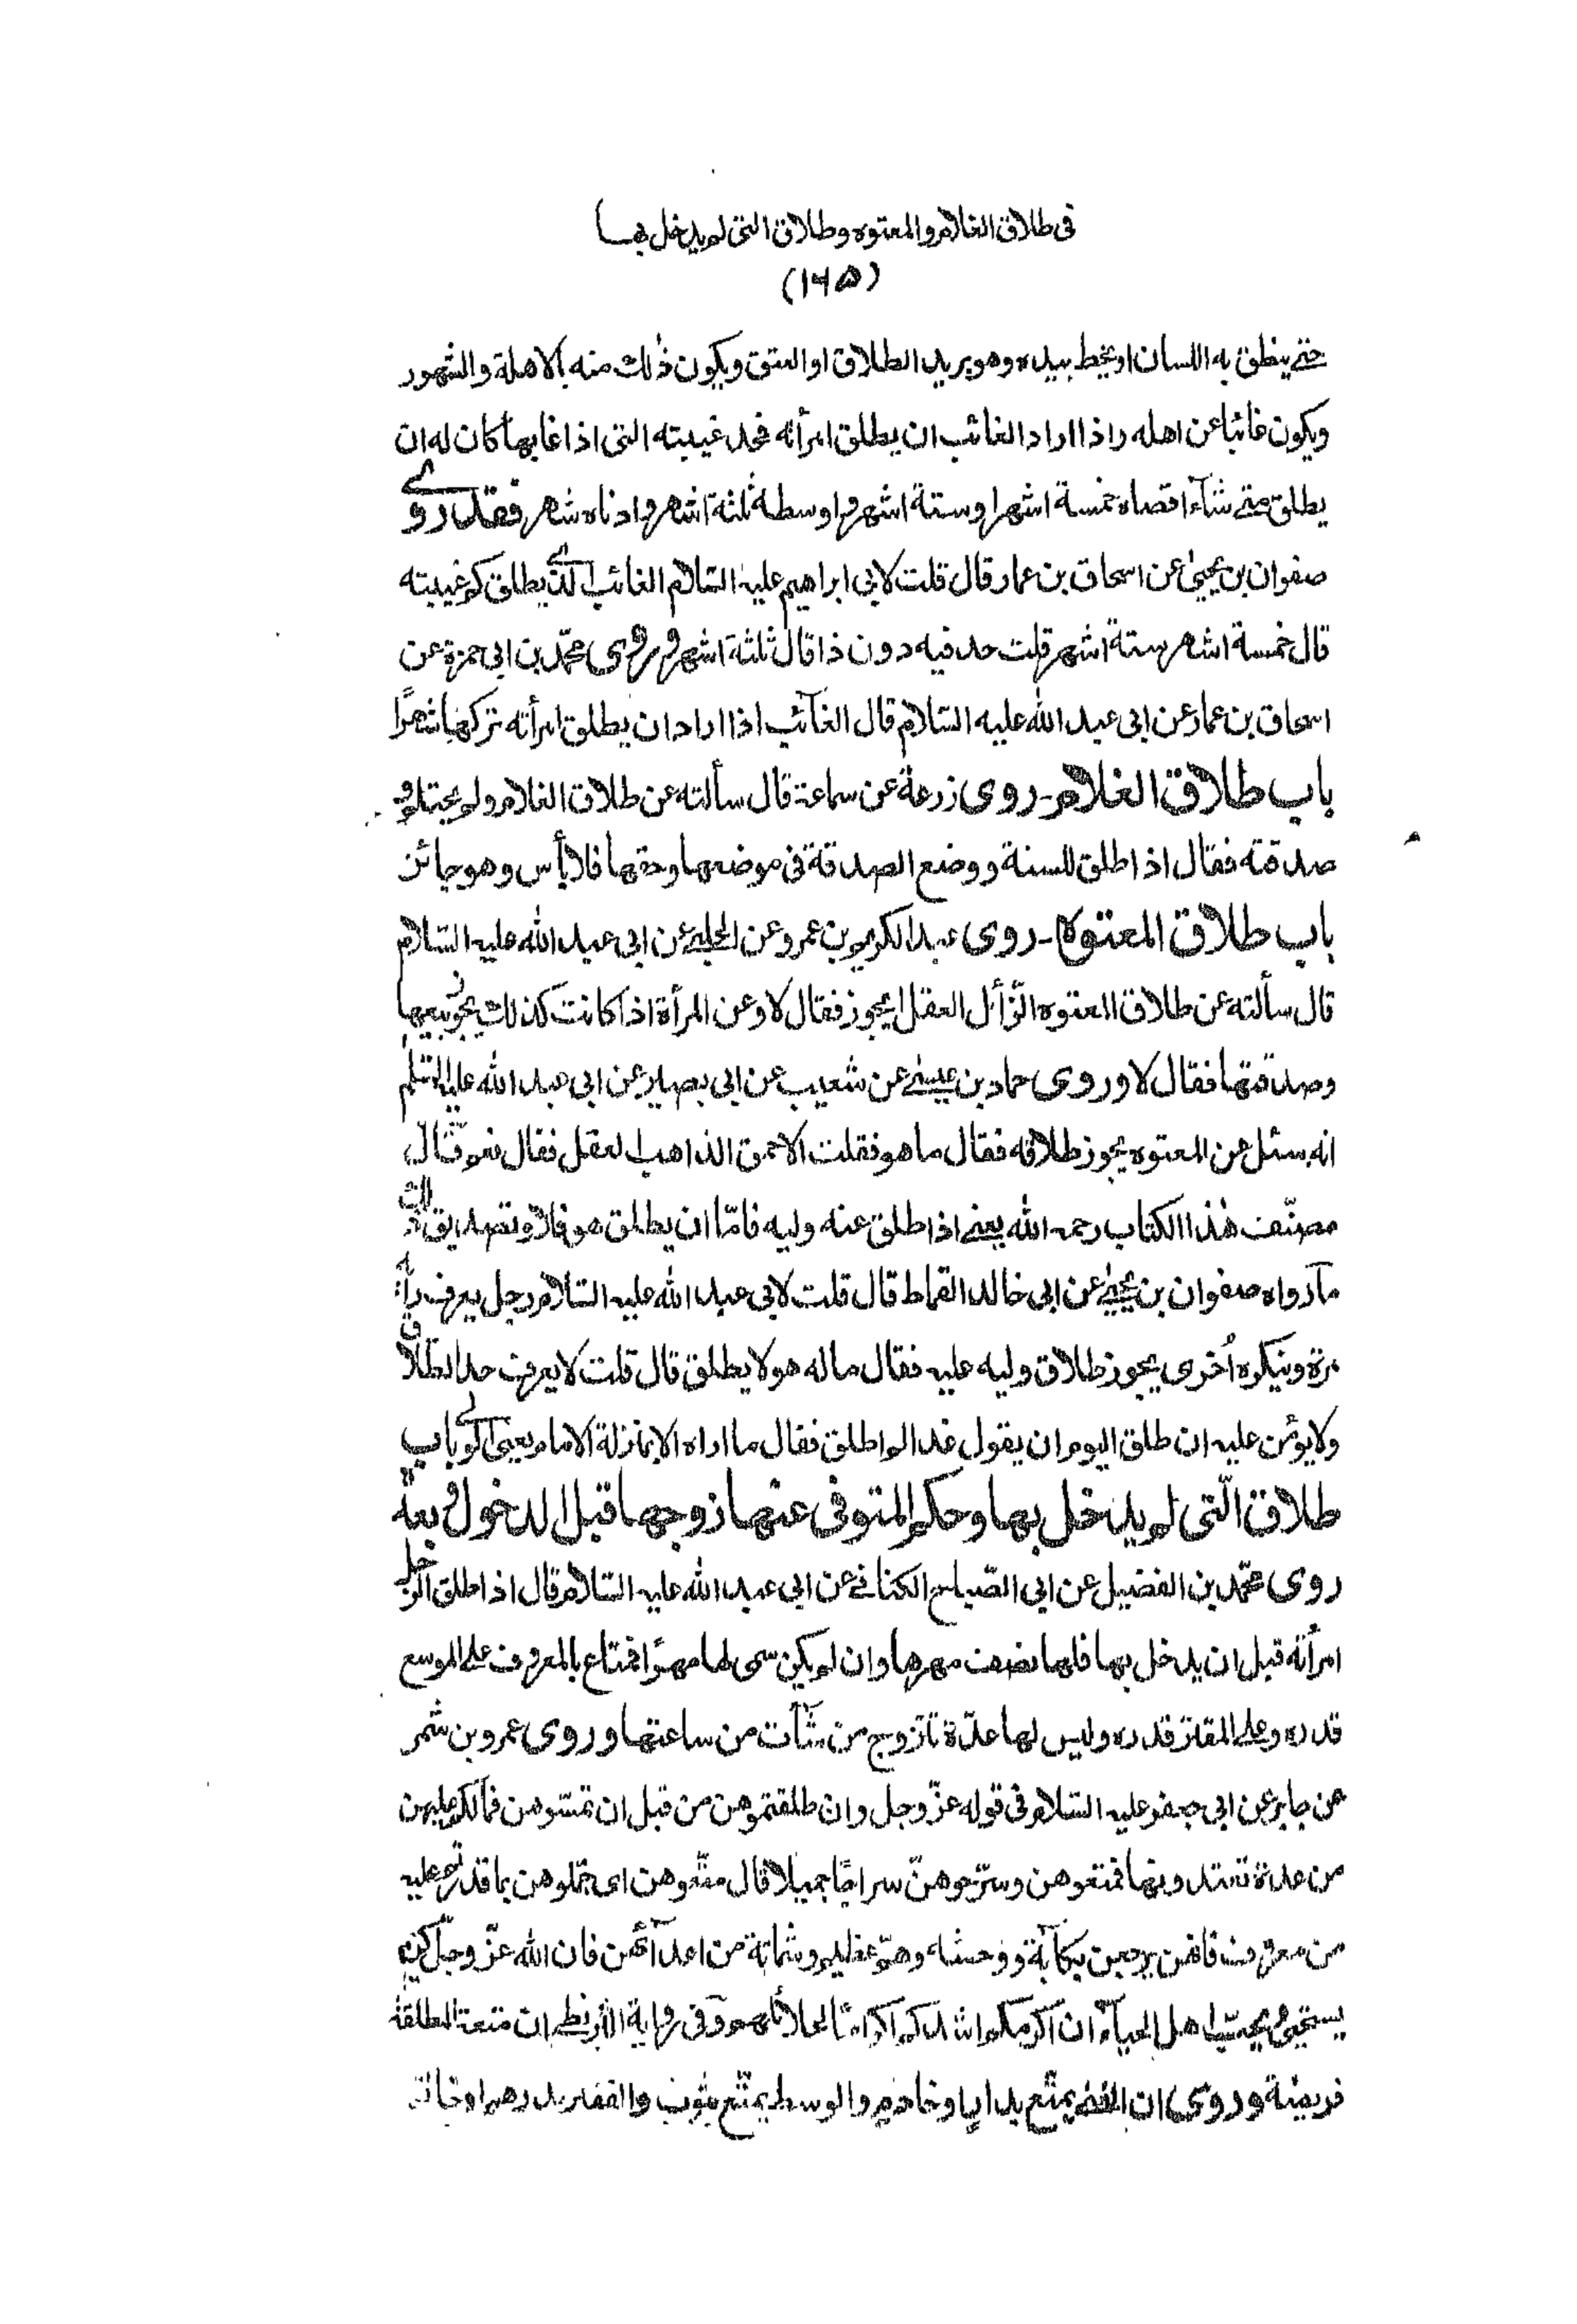 فى طلاق الغلام والمعتوه وطلاق التى لم يدخل بها
(١٦٥)
حتى ينطق به اللسان او يخط بيده وهو يريد الطلاق او العتق ويكون ذلك منه بالاهلة والشهور
ويكون غائبا عن اهله واذا اراد الغائب ان يطلق امرأته فحد غيبته التى اذا غابها كان له ان
يطلق متى شآء اقصاه خمسة اشهر او ستة اشهر واوسطه ثلثة اشهر وادناه شهر فقد روى
صفوان بن يحيى عن اسحاق بن عمار قال قلت لابى ابراهيم عليه السّلام الغائب الذى يطلق كم غيبته
قال خمسة اشهر ستة اشهر قلت حد فيه دون ذا قال ثلثة اشهر وروى محمّد بن ابى حمزة عن
اسحاق بن عمار عن ابى عبد الله عليه السّلام قال الغآئب اذا اراد ان يطلق امرأته تركها شهرًا
باب طلاق الغلام ـ روى زرعة عن سماعة قال سألته عن طلاق الغلام ولم يحتلم و
صدقته فقال اذا طلق للسنة ووضع الصدقة فى موضعها وحقها فلا بأس وهو جائز
باب طلاق المعتوه ـ روى عبد الكريم بن عمرو عن الحلبى عن ابى عبد الله عليه السّلام
قال سألته عن طلاق المعتوه الزّائل العقل ايجوز فقال لا وعن المرأة اذا كانت كذلك يجوز بيعها
وصدقتها فقال لا وروى حماد بن عيسى عن شعيب عن ابى بصير عن ابى عبد الله عليه السّلم
انه سئل عن المعتوه يجوز طلاقه فقال ما هو فقلت الاحمق الذاهب لعقل فقال نعم قال
مصنّف هذا الكتاب رحمه الله يعنى اذا طلق عنه وليه فامّا ان يطلق هو فلا وتصديق ذلك
مآ رواه صفوان بن يحيى عن ابى خالد القماط قال قلت لابى عبد الله عليه السّلام رجل يعرف رأيه
مرة وينكره اُخرى يجوز طلاق وليه عليه فقال ماله هو لا يطلق قال قلت لا يعرف حد الطّلاق
ولا يؤمن عليه ان طلق اليوم ان يقول غدا لم اطلق فقال ما اراه الا بمنزلة الامام يعنى الولى باب
طلاق الّتى لم يدخل بها وحكم المتوفى عنها زوجها قبل الدخول وبعده
روى محمّد بن الفضيل عن ابى الصّباح الكنانى عن ابى عبد الله عليه السّلام قال اذا طلق الرّجل
امرأته قبل ان يدخل بها فلها نصف مهرها وان لم يكن سمى لها مهرًا فمتاع بالمعروف على الموسع
قدره وعلى المقتر قدره وليس لها عدّة تتزوج من شآءت من ساعتها وروى عمرو بن شمر
عن جابر عن ابى جعفر عليه السّلام فى قوله عزّ وجل وان طلقتموهن من قبل ان تمسّوهن فمالكم عليهن
من عدة تعتدونها فمتعوهن وسرّحوهنّ سراحًا جميلا قال متّعوهن اى جمّلوهن بما قدرتم عليه
من معروف فانهن يرجعن بكآبة ووحشة وهمّ عظيم وشماتة من اعدآئهن فان الله عزّ وجلّ كريم
يستحيى ويحبّ اهل الحيآء ان اكرمكم اشدكم اكرامًا لحلائلهم وفى رواية البزنطى ان متعة المطلقة
فريضة وروى ان الغنى يمتّع بدار او خادم والوسط يمتّع بثوب والفقير بدرهم او خاتم